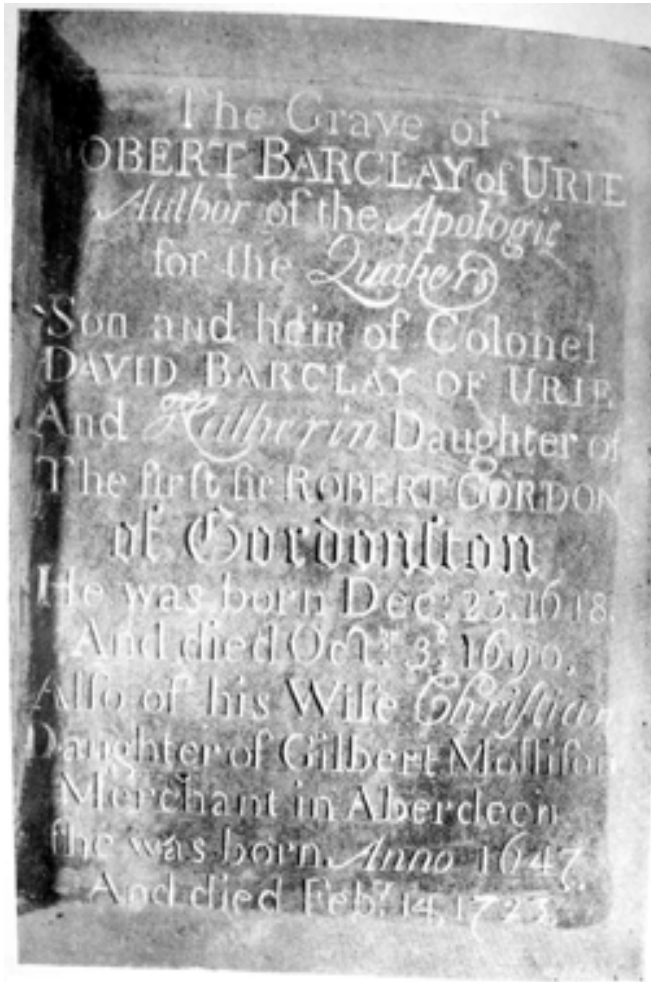 The Grave of
ROBERT BARCLAY of URIE
Author of the Apologie
for the Quakers
Son and heir of Colonel
DAVID BARCLAY OF URIE
And Katherin Daughter of
The firſt ſir ROBERT GORDON
of Gordonſton
He was born Decr: 23. 1648.
And died Octr. 3d: 1690.
Alſo of his Wife Chriſtian
Daughter of Gilbert Molliſon
Merchant in Aberdeen
ſhe was born Anno 1647.
And died Febr. 14, 1723.